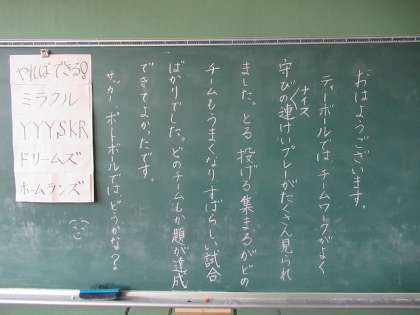 おはようございます。
ティーボールでは チームワークがよく
ナイス
守びの連けいプレーがたくさん見られ
ました。とる 投げる 集まるがどの
チームもうまくなりすばらしい試合
ばかりでした。どのチームも課題が達成
できてよかったです。
サッカー、ポートボールではどうかな？
やればできる!
ミラクル
YYYSKR
ドリームズ
ホームランズ